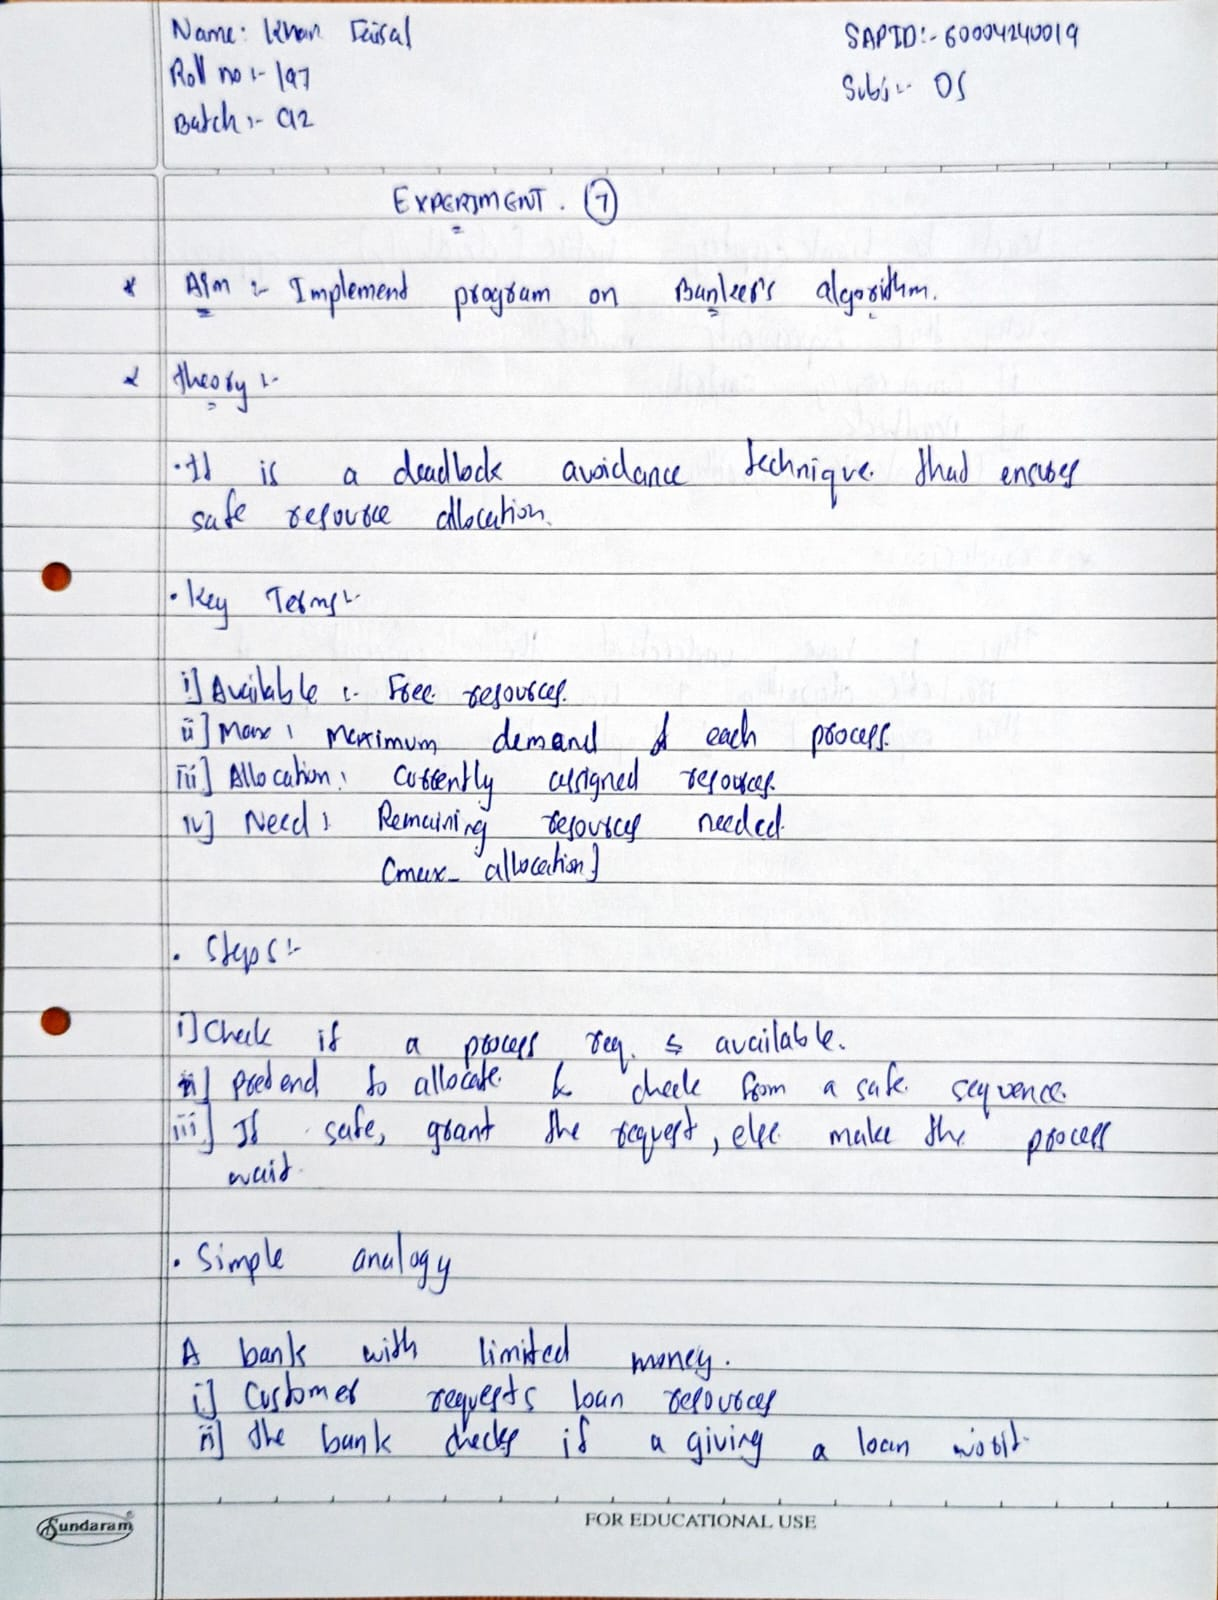 Name: Khan Faisal
SAPID:- 60004240019
Roll no :- 197
Subj :- OS
Batch :- C12
EXPERIMENT. 7
* Aim :- Implemend program on Banker's algorithm.
* Theory :-
• It is a deadlock avoidance technique that ensures
safe resource allocation.
• Key Terms :-
i] Available :- Free resources.
ii] Max : Maximum demand of each process.
iii] Allocation : Currently assigned resources.
iv] Need : Remaining resources needed.
[max - allocation]
• Steps :-
i] Check if a process req. is available.
ii] Pretend to allocate & check from a safe sequence.
iii] If safe, grant the request, else make the process
wait.
• Simple analogy
A bank with limited money.
i] Customer requests loan resources
ii] the bank checks if a giving a loan
Sundaram
FOR EDUCATIONAL USE